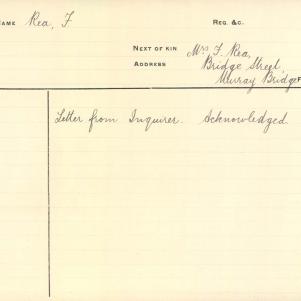 NAME Rea, F. REG. &C.
NEXT OF KIN Mrs F. Rea,
ADDRESS Bridge Street,
Murray Bridge
Letter from Inquirer. Acknowledged